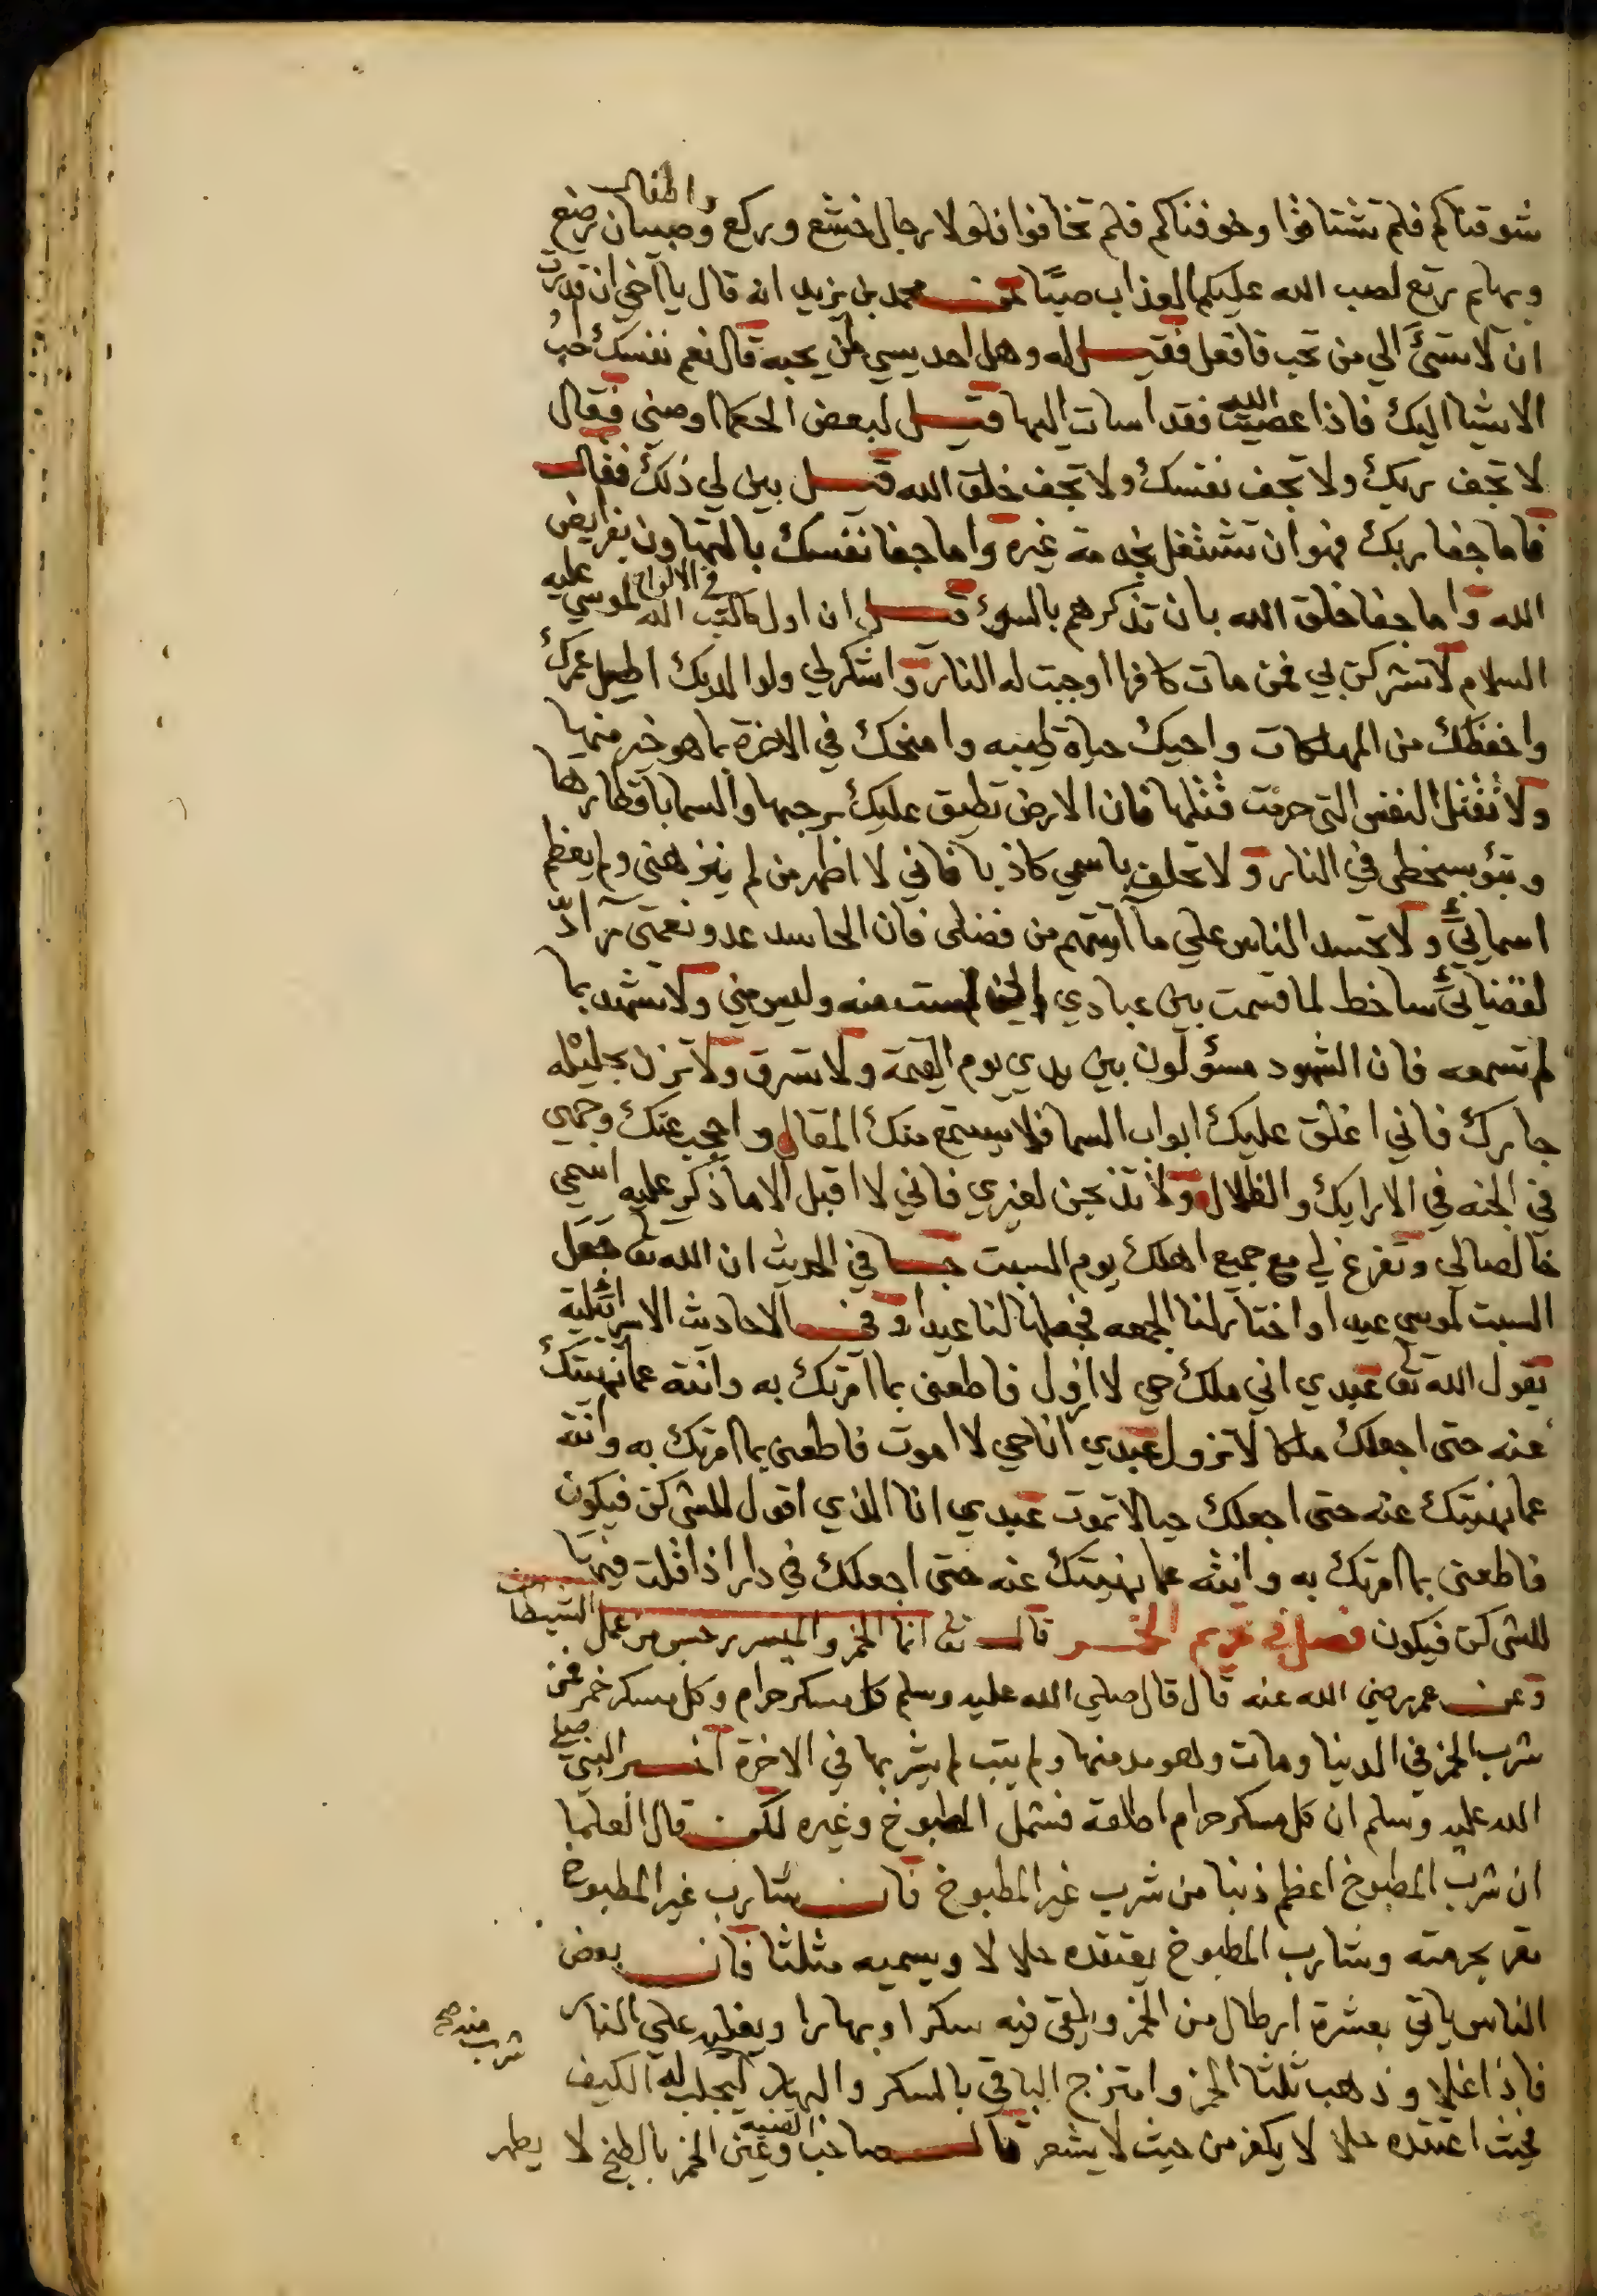 شوقناكم فلم تشتاقوا وخوفناكم فلم تخافوا فلولا رجال خشع وركع وصبيان رضع واطفال
وبهايم رتع لصب الله عليكم العذاب صبًا عن محمد بن يزيد انه قال يا اخي ان قدرت
ان لا تسئ الي من تحب فافعل فقيل له وهل احد يسي لمن يحبه قال نعم نفسك احب
الاشيا اليك فاذا عصيت الله فقد اسات اليها قيل لبعض الحكما اوصني فقال
لا تجف ربك ولا تجف نفسك ولا تجف خلق الله قيل بين لي ذلك فقال
فاما جفا ربك فهو ان تشتغل بخدمة غيره واما جفا نفسك بالتهاون بفرايض
الله واما جفا خلق الله بان تذكرهم بالسوء قيل ان اول ما كتب الله في الالواح لموسي عليه
السلام لا تشركن بي فمن مات كافرا اوجبت له النار واشكر لي ولوالديك اطيل عمرك
واحفظك من المهلكات واحيك حياة طيبه وامنحك في الاخرة بما هو خير منها
ولا تقتل النفس التي حرمت قتلها فان الارض تطبق عليك برحبها والسما باقطارها
وتبؤ بسخطي في النار ولا تحلف باسمي كاذبا فاني لا اطهر من لم ينزهني ولم يعظم
اسمائي ولا تحسد الناس علي ما آتيتهم من فضلي فان الحاسد عدو نعمتي راد
لقضائي ساخط لما قسمت بين عبادي لست منه وليس مني ولا تشهد بما
لم تسمعه فان الشهود مسؤلون بين يدي يوم القيمة ولا تسرق ولا تزن بحليله
جارك فاني اغلق عليك ابواب السما فلا يستمع منك المقال واحجب عنك وجهي
في الجنه في الارايك والظلال ولا تذبحن لغيري فاني لا اقبل الا ما ذكر عليه اسمي
خالصا لي وتفرغ لي مع جميع اهلك يوم السبت جا في الحديث ان الله تعا جعل
السبت لموسي عيدا واختار لنا الجمعه فجعلها لنا عيدا وفي الاحاديث الاسرائيلية
يقول الله تعا عبدي اني ملك حي لا ازول فاطعني بما امرتك به وانته عما نهيتك
عنه حتي اجعلك ملكا لا تزول عبدي انا حي لا اموت فاطعني بما امرتك به وانته
عما نهيتك عنه حتي اجعلك حيا لا تموت عبدي انا الذي اقول للشي كن فيكون
فاطعني بما امرتك به وانته عما نهيتك عنه حتي اجعلك في دار اذا قلت فيها
للشي كن فيكون فصل في تحريم الخمر قال تعا انما الخمر والميسر رجس من عمل الشيطان
وعن عمر رضي الله عنه قال قال صلي الله عليه وسلم كل مسكر حرام وكل مسكر خمر فمن
شرب الخمر في الدنيا ومات وهو مدمنها ولم يتب لم يشربها في الاخرة النبي صلي
الله عليه وسلم ان كل مسكر حرام اطلقه فشمل المطبوخ وغيره لكن قال العلما
ان شرب المطبوخ اعظم ذنبا من شرب غير المطبوخ فان شارب غير المطبوخ
يقر بحرمته وشارب المطبوخ يعتقده حلالا ويسميه مثلثا فان بعض
الناس ياتي بعشرة ارطال من الخمر ويلقي فيه سكرا وبهارا ويغليه علي النار
فاذا اغلا وذهب ثلثا الخمر وامتزج الباقي بالسكر والبهار ليجلب له الكيف
شرب منه صح
فحيث اعتقده حلالا يكفر من حيث لا يشعر قال صاحب القنيه وعين الخمر بالطبخ لا يطهر